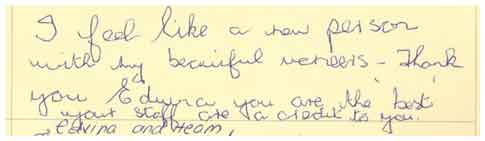 I feel like a new person
with my beautiful veneers - Thank
you Edwina you are the best
your staff are a credit to you.
Edvina and team,